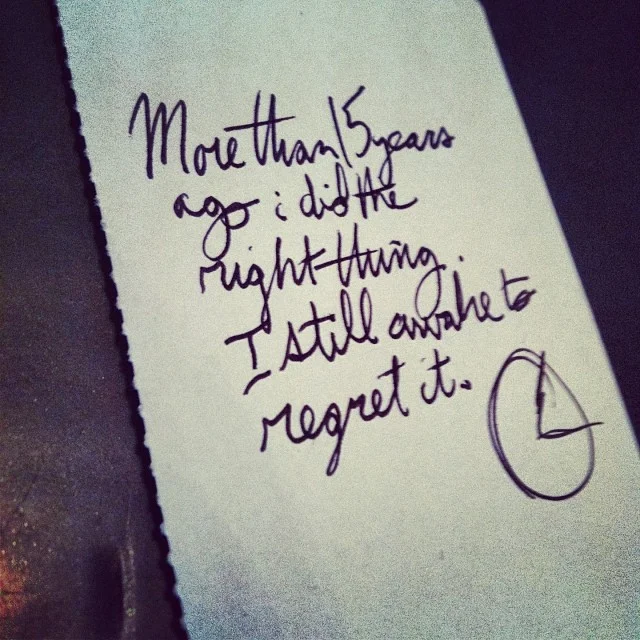 More than 15 years
ago i did the
right thing.
I still awake to
regret it.